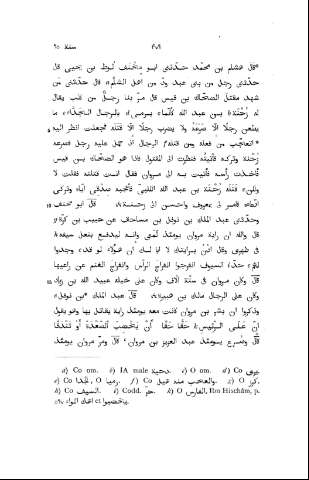 سنة ٦٥ ٧٠٩
قال هشام بن محمد حدثني ابو مخنف لوط بن يحيى قال
حدثني رجل من بني عبد ود من اهل الشام قال حدثني من
شهد مقتل الضحاك بن قيس قال مر بنا رجل من كلب يقال
له زحنة بن عبد الله كأنما يرمى بالرجال الجداء ما
يطعن رجلا الا صرعه ولا يضرب رجلا الا قتله فجعلت انظر اليه
اتعجب من فعله ومن قتله الرجال اذ حمل عليه رجل فصرعه
زحنة وتركه فأتيته فنظرت الى المقتول فاذا هو الضحاك بن قيس
فأخذت رأسه فأتيت به الى مروان فقال انت قتلته فقلت لا
ولكن قتله زحنة بن عبد الله الكلبي فأعجبه صدقي اياه وتركي
ادعاءه فأمر لي بمعروف واحسن الى زحنة قال ابو مخنف
وحدثني عبد الملك بن نوفل بن مساحق عن حبيب بن كرة
قال والله ان راية مروان يومئذ لمعي وانه ليدفع بنعل سيفه
في ظهري وقال ادن برايتك لا ابا لك ان هؤلاء لو قد وجدوا
لهم حد السيوف انفرجوا انفراج الرأس وانفراج الغنم عن راعيها
قال وكان مروان في ستة آلاف وكان على خيله عبيد الله بن زياد
وكان على الرجال مالك بن هبيرة قال عبد الملك بن نوفل
وذكروا ان بشر بن مروان كانت معه يومئذ راية يقاتل بها وهو يقول
ان على الرئيس حقا حقا ان يخضب الصعدة او تندقا
قال وصرع يومئذ عبد العزيز بن مروان قال ومر مروان يومئذ
a) Co om. b) IA male دحية. c) O om. d) Co
e) Co الجدا, O f) Co والعاجب منه g) O كرز.
h) Co السيف. i) Codd. حر. k) O الفارس, Ibn Hischâm, p.